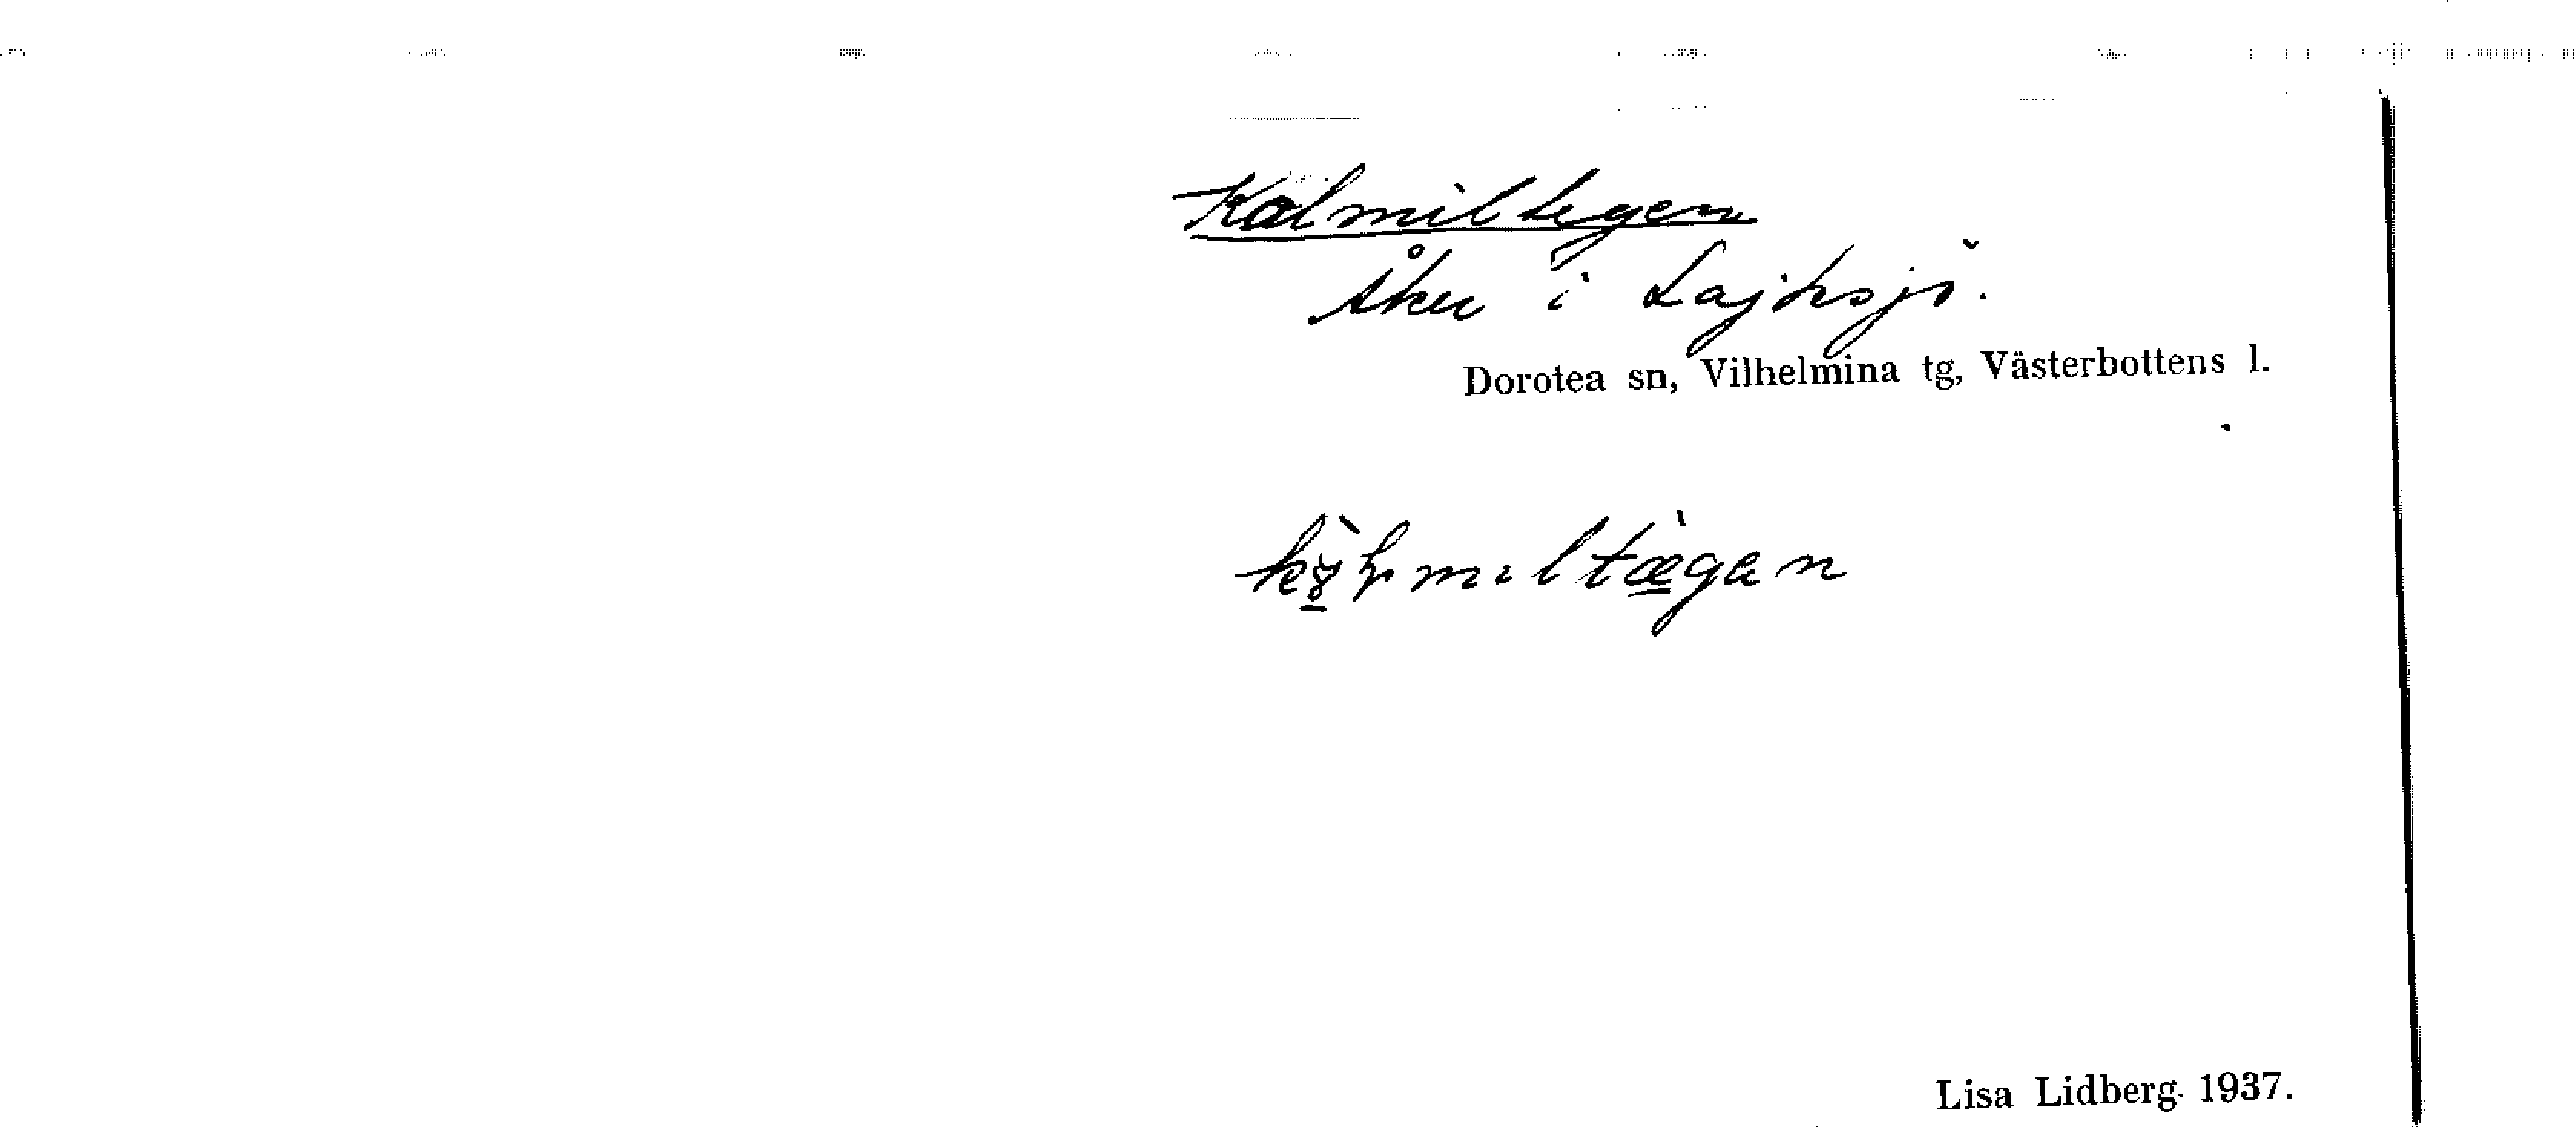 Kolmiltegen
Åker i Lajksjö.
Dorotea sn, Vilhelmina tg, Västerbottens l.
Lisa Lidberg. 1937.